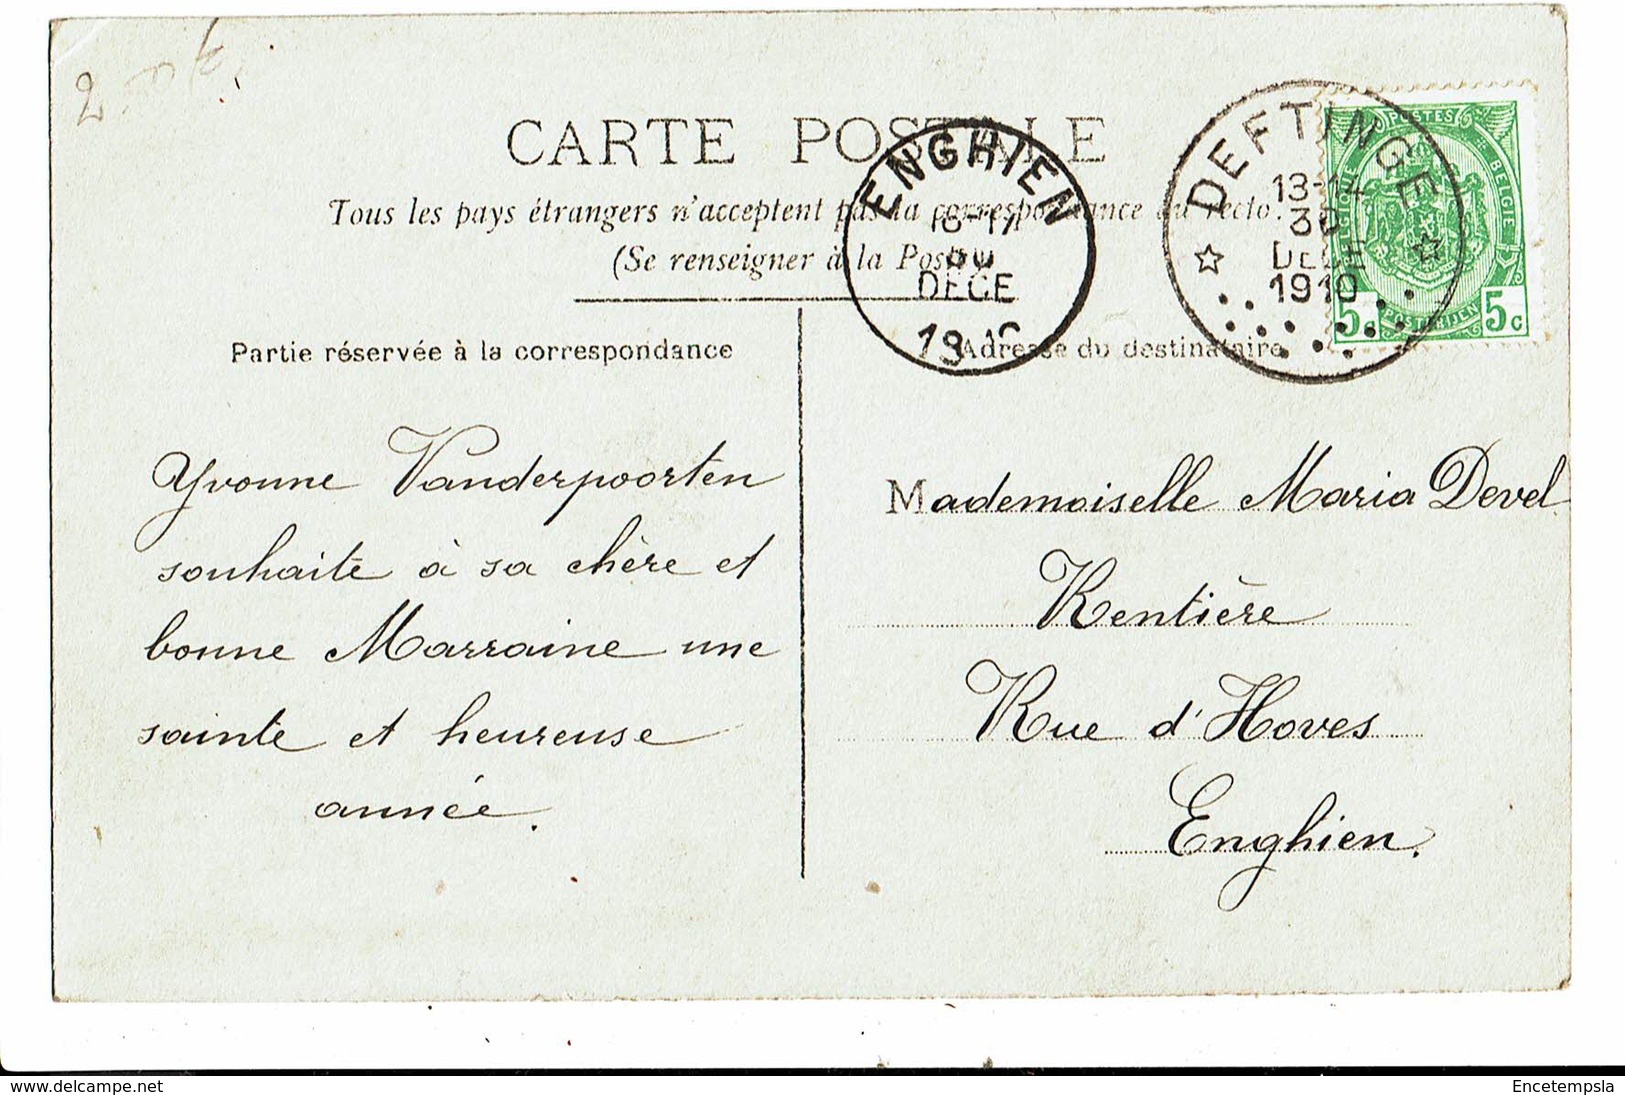 2
CARTE POSTALE
Tous les pays étrangers n'acceptent pas la correspondance au recto.
(Se renseigner à la Poste)
ENGHIEN
16-17
30
DECE
1910
DEFTINGE
13-14
30
DECE
1910
POSTES
BELGIQUE
BELGIË
POSTERIJEN
5c 5c
Partie réservée à la correspondance
Adresse du destinataire
Yvonne Vanderpoorten
souhaite à sa chère et
bonne Marraine une
sainte et heureuse
année.
Mademoiselle Maria Devel
Rentière
Rue d'Hoves
Enghien.
www.delcampe.net
Encetempsla